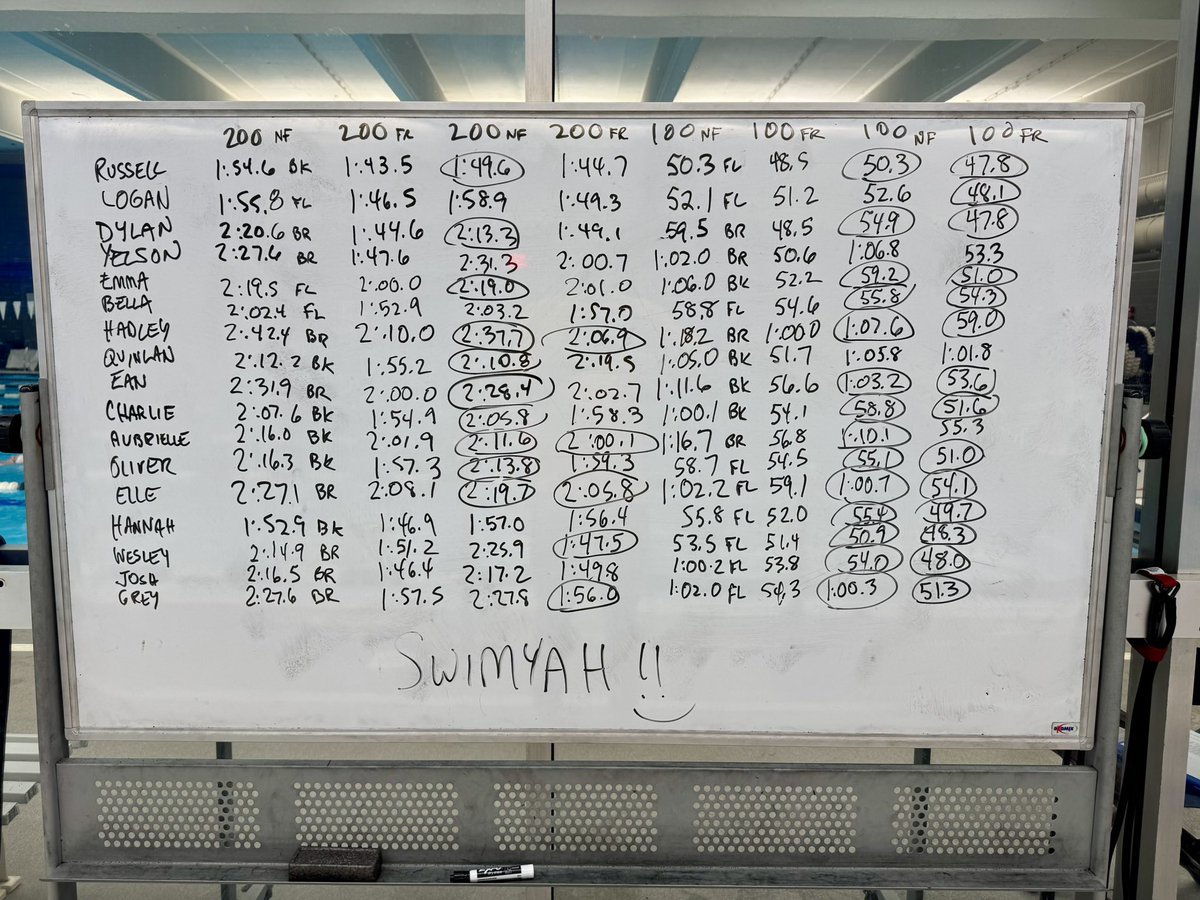 200 NF 200 FR 200 NF 200 FR 100 NF 100 FR 100 NF 100 FR
RUSSELL 1:54.6 BK 1:43.5 1:49.6 1:44.7 50.3 FL 48.5 50.3 47.8
LOGAN 1:55.8 FL 1:46.5 1:58.9 1:49.3 52.1 FL 51.2 52.6 48.1
DYLAN 2:20.6 BR 1:44.6 2:13.3 1:49.1 59.5 BR 48.5 54.9 47.8
YELSON 2:27.6 BR 1:47.6 2:31.3 2:00.7 1:02.0 BR 50.6 1:06.8 53.3
EMMA 2:19.5 FL 2:00.0 2:19.0 2:01.0 1:06.0 BK 52.2 59.2 51.0
BELLA 2:02.4 FL 1:52.9 2:03.2 1:57.0 58.8 FL 54.6 55.8 54.3
HADLEY 2:42.4 BR 2:10.0 2:37.7 2:06.9 1:18.2 BR 1:00.0 1:07.6 59.0
QUINLAN 2:12.2 BK 1:55.2 2:10.8 2:19.5 1:05.0 BK 51.7 1:05.8 1:01.8
EAN 2:31.9 BR 2:00.0 2:28.4 2:02.7 1:11.6 BK 56.6 1:03.2 53.6
CHARLIE 2:07.6 BK 1:54.9 2:05.8 1:58.3 1:00.1 BK 54.1 58.8 51.6
AUBRIELLE 2:16.0 BK 2:01.9 2:11.6 2:00.1 1:16.7 BR 56.8 1:10.1 55.3
OLIVER 2:16.3 BK 1:57.3 2:13.8 1:59.3 58.7 FL 54.5 55.1 51.0
ELLE 2:27.1 BR 2:08.1 2:19.7 2:05.8 1:02.2 FL 59.1 1:00.7 54.1
HANNAH 1:52.9 BK 1:46.9 1:57.0 1:56.4 55.8 FL 52.0 55.4 49.7
WESLEY 2:14.9 BR 1:51.2 2:25.9 1:47.5 53.5 FL 51.4 50.9 48.3
JOSA 2:16.5 BR 1:46.4 2:17.2 1:49.8 1:00.2 FL 53.8 54.0 48.0
GREY 2:27.6 BR 1:57.5 2:27.8 1:56.0 1:02.0 FL 1:00.3 51.3
SWIMYAH !!